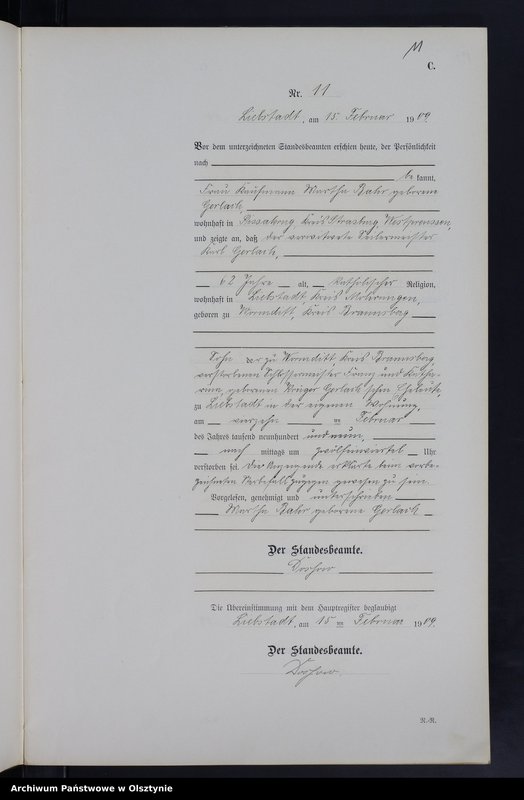 11
C.
Nr. 11
Liebstadt, am 15 Februar 1909.
Vor dem unterzeichneten Standesbeamten erschien heute, der Persönlichkeit
nach
be kannt,
Frau Kaufmann Martha Bahr geborene
Gerlach,
wohnhaft in Kreis Strasburg Westpreussen,
und zeigte an, daß der verwitwete Seilermeister
Karl Gerlach,
62 Jahre alt, katholischer Religion,
wohnhaft in Liebstadt, Kreis Mohrungen,
geboren zu Wormditt, Kreis Braunsberg
Sohn der zu Wormditt, Kreis Braunsberg
verstorbenen Schlossermeister Franz und Katha-
rina, geborenen Gerlach'schen Eheleute,
zu Liebstadt in der eigenen Wohnung,
am vierzehn ten Februar
des Jahres tausend neunhundert und neun,
nach mittags um Uhr
verstorben sei. Der Anzeigende erklärte beim vorbe-
zeichneten Sterbefall zugegen gewesen zu sein.
Vorgelesen, genehmigt und unterschrieben
Martha Bahr geborene Gerlach
Der Standesbeamte.
Die Übereinstimmung mit dem Hauptregister beglaubigt
Liebstadt, am 15 ten Februar 1909.
Der Standesbeamte.
N.-R.
Archiwum Państwowe w Olsztynie